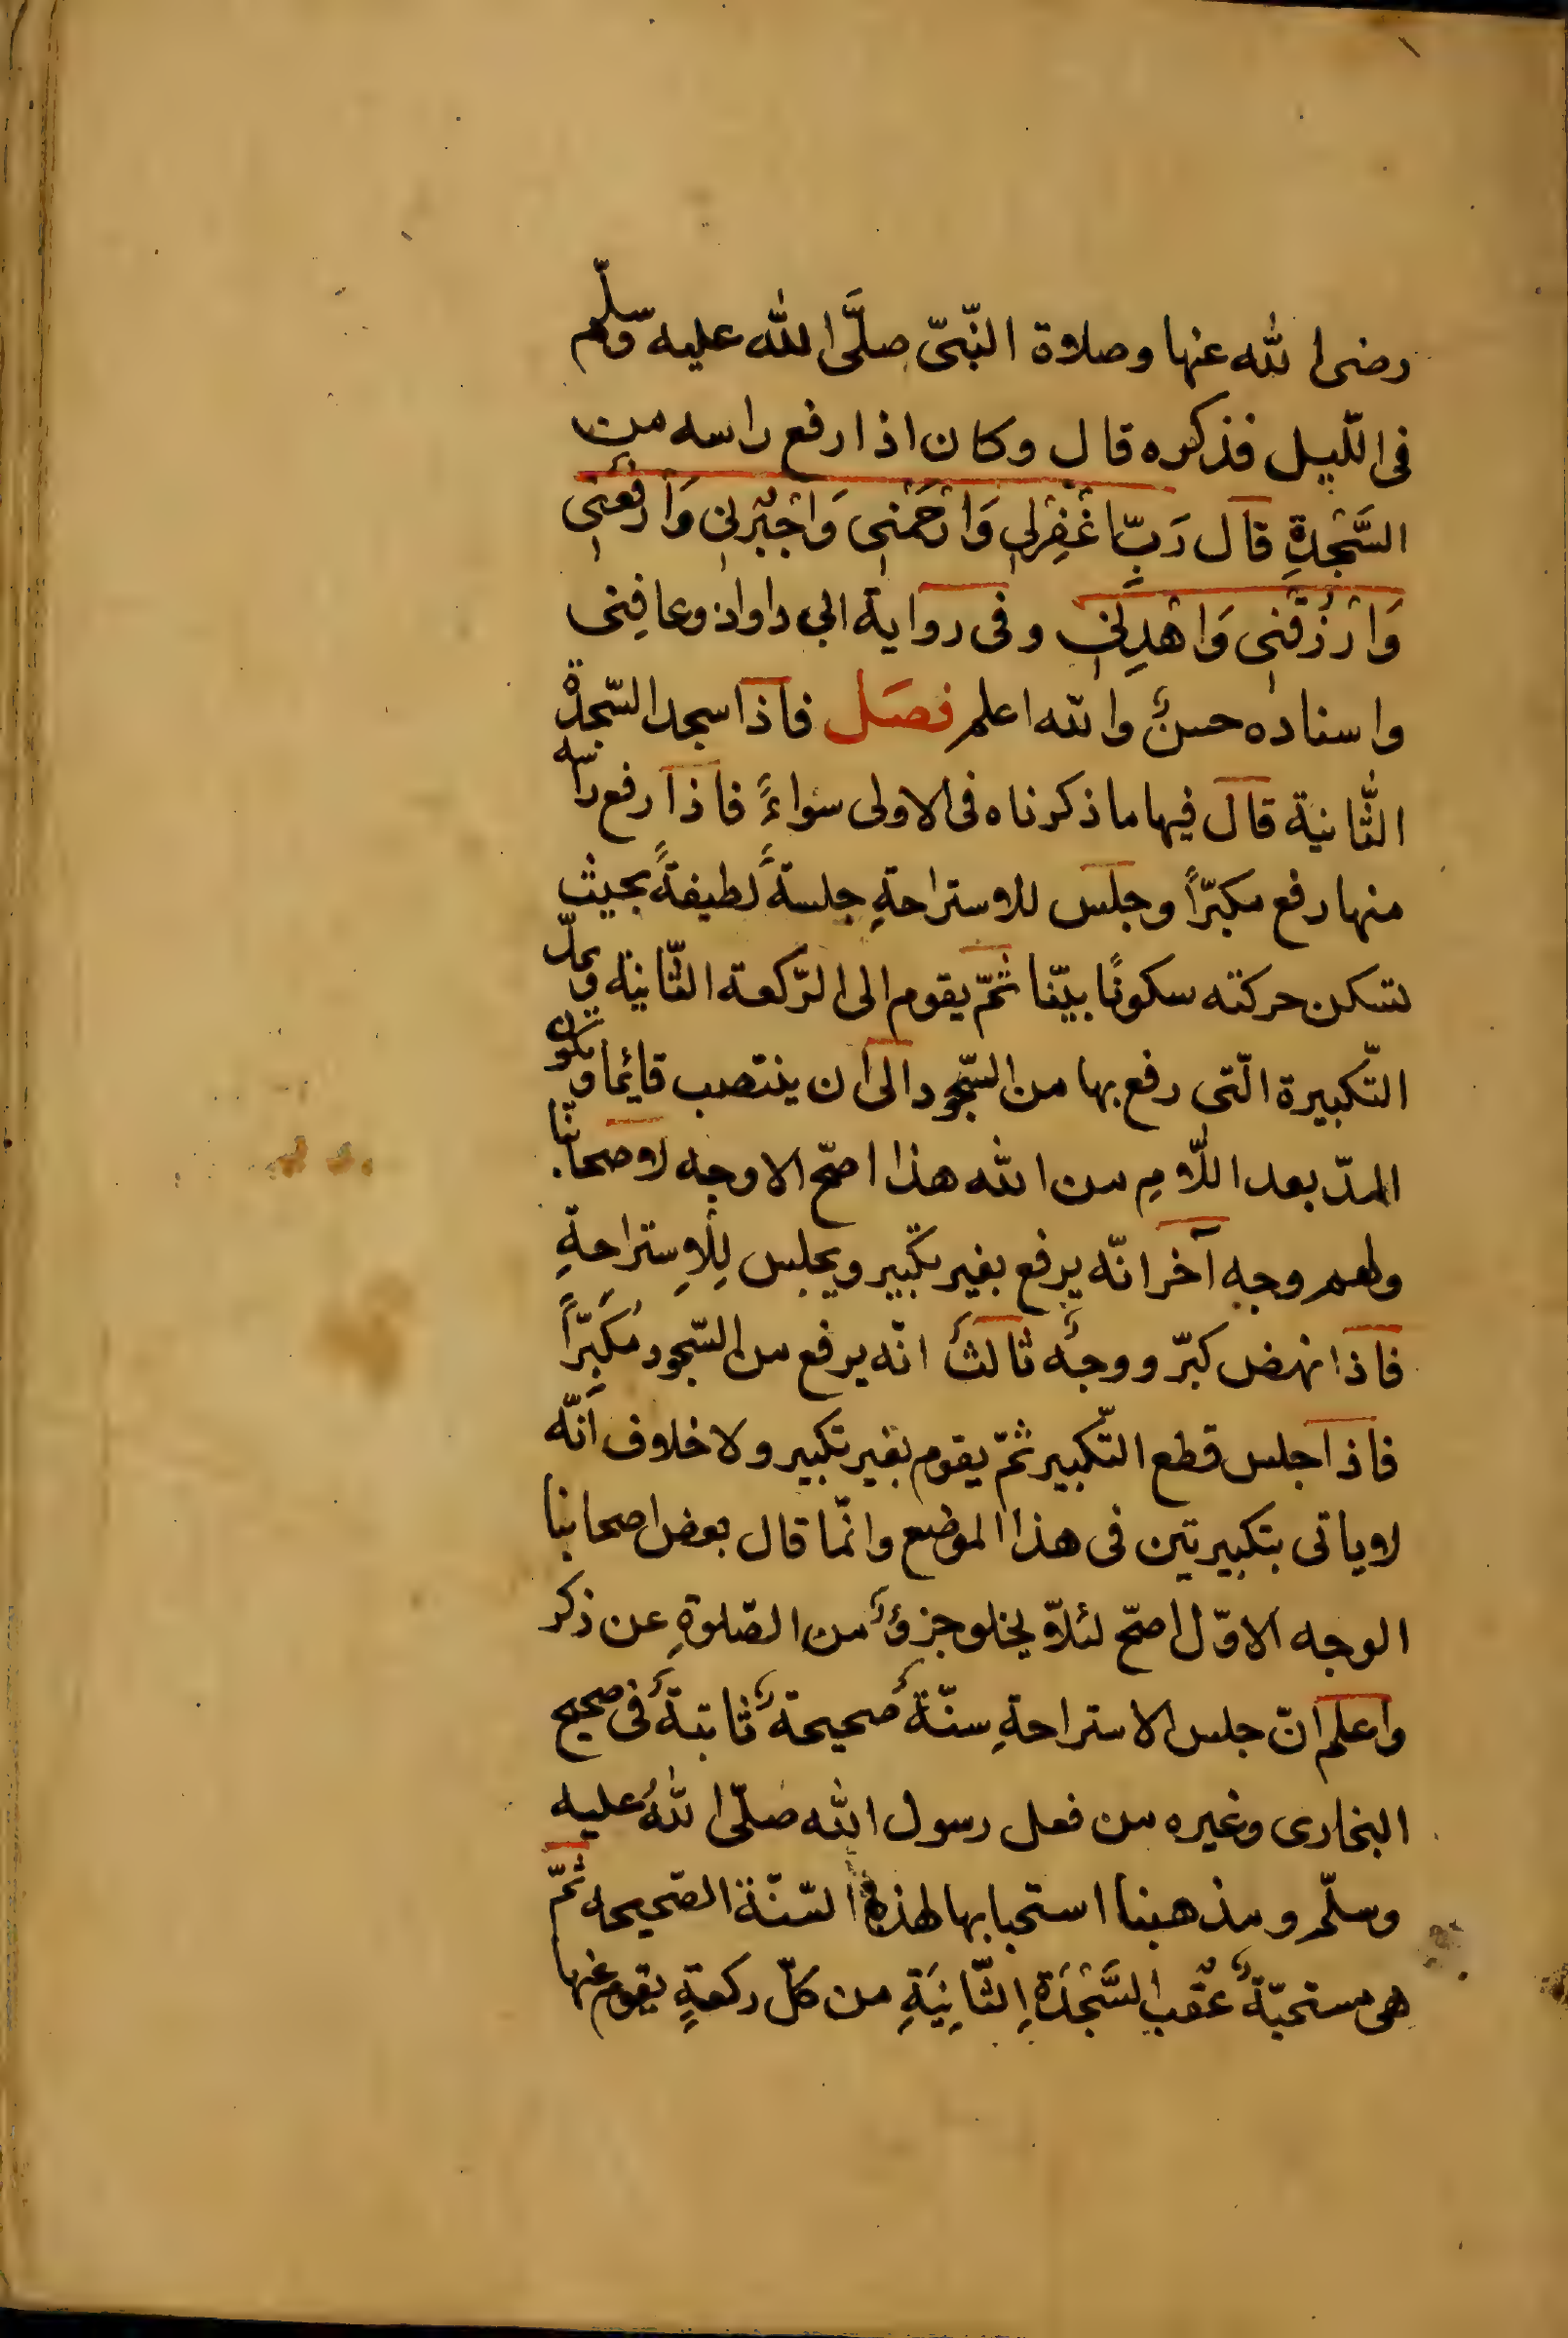 رضى الله عنها وصلاة النّبىّ صلَّى الله عليه وسلّم
فى اللّيل فذكره قال وكان اذا رفع راسه من
السَّجْدَةِ قال رَبِّ اغْفِرْلِى وَارْحَمْنِى وَاجْبُرْنِى وَارْفَعْنِى
وَارْزُقْنِى وَاهْدِنِى وفى رواية ابى داواد وعافِنِى
واسناده حسنٌ والله اعلم فصل فاذا سجد السّجدة
الثّانية قال فيها ما ذكرناه فى الاولى سواءً فاذا رفع راسه
منها رفع مكبّراً وجلس للاستراحةِ جلسةً لطيفةً بحيث
تسكن حركته سكونًا بيّنا ثمّ يقوم الى الرّكعة الثّانية ويمدّ
التّكبيرة الّتى رفع بها من السّجود الى ان ينتصب قائما ويكون
المدّ بعد اللّامِ من الله هذا اصحّ الاوجه لاصحابنا
ولهم وجه آخر انّه يرفع بغير تكبير ويجلس لِلاِستراحةِ
فاذا نهض كبّر ووجهٌ ثالثٌ انّه يرفع من السّجود مُكَبِّراً
فاذا جلس قطع التّكبير ثمّ يقوم بغير تكبير ولا خلاف أنّه
لا ياتى بتكبيرتين فى هذا الموضع وانّما قال بعض اصحابنا
الوجه الاوّل اصحّ لئلاّ يخلو جزؤٌ من الصّلوةِ عن ذكر
واعلم انّ جلس الاستراحةِ سنّةٌ صحيحةٌ ثابتةٌ فى صحيح
البخارى وغيره من فعل رسول الله صلّى اللهُ عليه
وسلّم ومذهبنا استحبابها لهذه السّنّة الصّحيحه ثمّ
هى مستحبّةٌ عقب السَّجْدَةِ الثَّانِيَةِ من كلّ ركعةٍ يقوم عنها